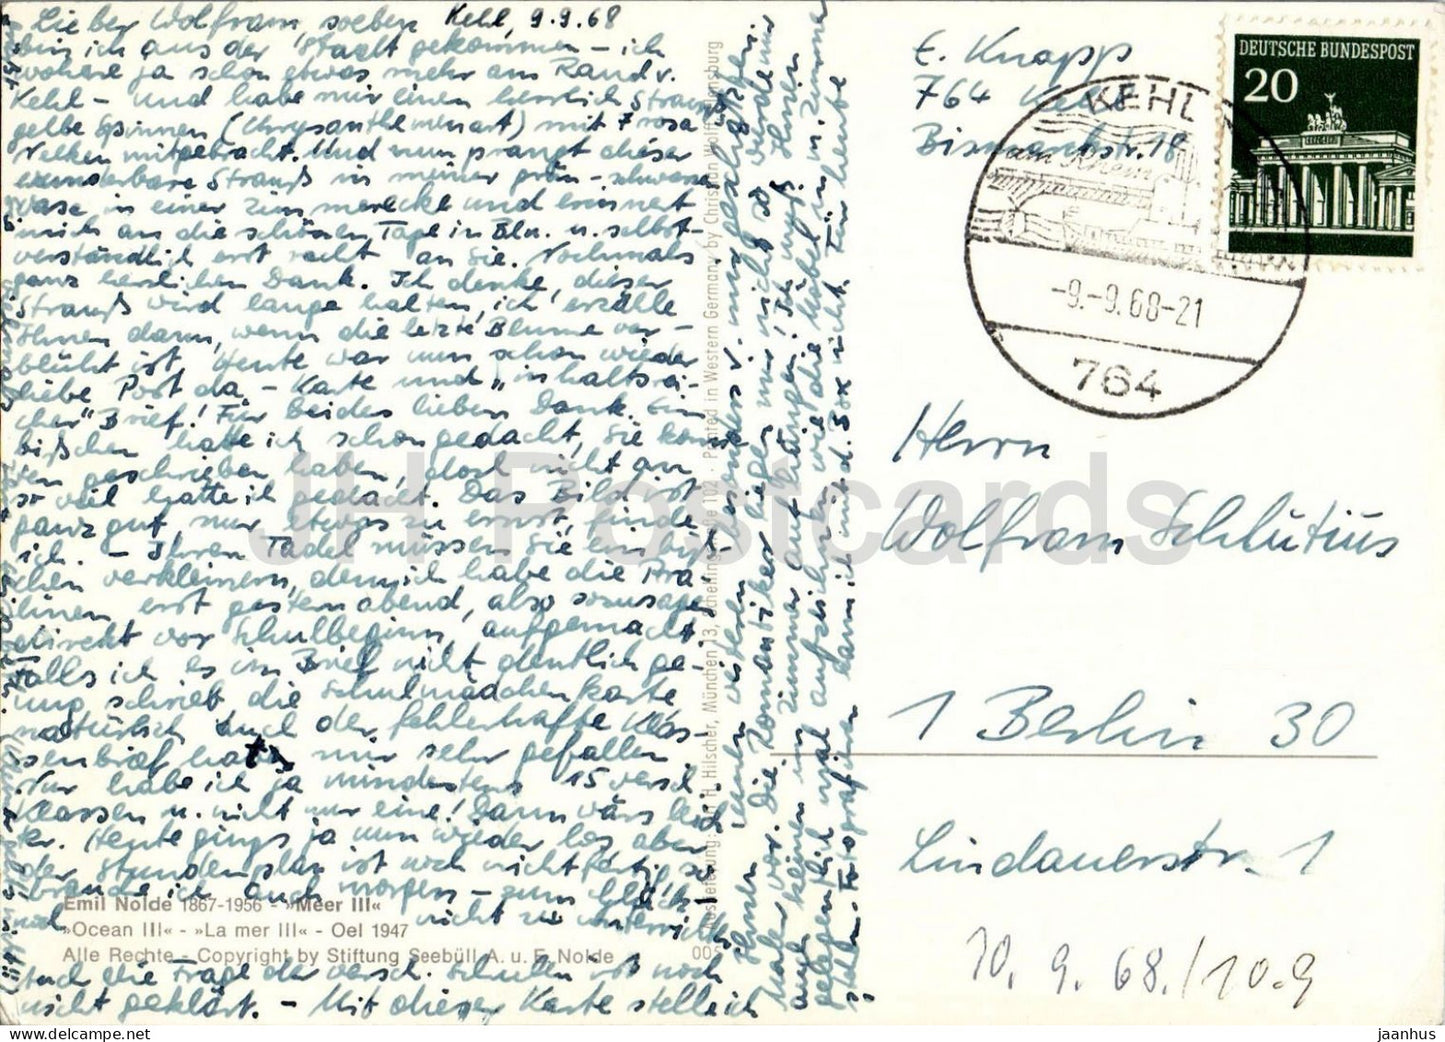 Kehl, 9.9.68
Lieber Wolfram, soeben
bin ich aus der Stadt gekommen – ich
wohne ja schon etwas mehr am Rand v.
Kehl – und habe mir einen herrlich Strauß
gelbe Spinnen (Chrysanthemenart) mit 7 rosa
Nelken mitgebracht. Und nun prangt dieser
wunderbare Strauß in meiner grün-schwarz
Vase in einer Zimmerecke und erinnert
mich an die schönen Tage in Bln. u. selbst-
verständlich erst recht an Sie. Nochmals
ganz herzlichen Dank. Ich denke, dieser
Strauß wird lange halten, ich erzähle
Ihnen dann, wenn die letzte Blume ver-
blüht ist. Heute war nun schon wieder
liebe Post da, – Karte und „inhaltsrei-
cher" Brief! Für beides lieben Dank. Ein
bißchen hatte ich schon gedacht, Sie könn
ten geschrieben haben, doch nicht an
so viel hatte ich gedacht. Das Bild ist
ganz gut, nur etwas zu ernst, finde
ich. – Ihren Tadel müssen Sie ein biß-
chen verkleinern, denn ich habe die Pra-
linen erst gestern abend, also sozusagen
direkt vor Schulbeginn, aufgemacht
Falls ich es im Brief nicht deutlich ge-
nug schrieb die Schulmädchenkarte
natürlich auch der fehlerhafte Klas-
senbrief hat mir sehr gefallen
Nur habe ich ja mindestens 15 versch.
Klassen u. nicht nur eine! Dann wärs leich
ter. Heute gings ja nun wieder los aber
der Stundenplan ist noch nicht fertig, so
brauche ich auch morgen – zum Glück
noch nicht zu unterrichten
Auch die Frage der versch. Schulen ist noch
nicht geklärt. – Mit dieser Karte stelle ich
Ihnen einen weiteren besonders v. mir geschätzten
Maler vor. Die Romantiker liegen mir nicht so werde mir
auch keinen im Zimmer aufhängen! Ich muß Ihnen
gelegentlich mal aufzeichnen wie die Möbel in m. Zimmer
stehn. Fotografieren kann ich mit d. Box nicht. Für heute
Emil Nolde 1867-1956 - »Meer III«
»Ocean III« - »La mer III« - Oel 1947
Alle Rechte - Copyright by Stiftung Seebüll A. u. E. Nolde
Hilscher, München 13, Schellingstraße 102 · Printed in Western Germany by Christian Wolff, Flensburg
E. Knapp
764 Kehl
Bismarckstr. 18
DEUTSCHE BUNDESPOST
20
KEHL
am Rhein
-9.-9.68-21
764
Herrn
Wolfram Schlutius
1 Berlin 30
Lindauerstr. 1
10. 9. 68./10.9
JH Postcards
www.delcampe.net
jaanhus